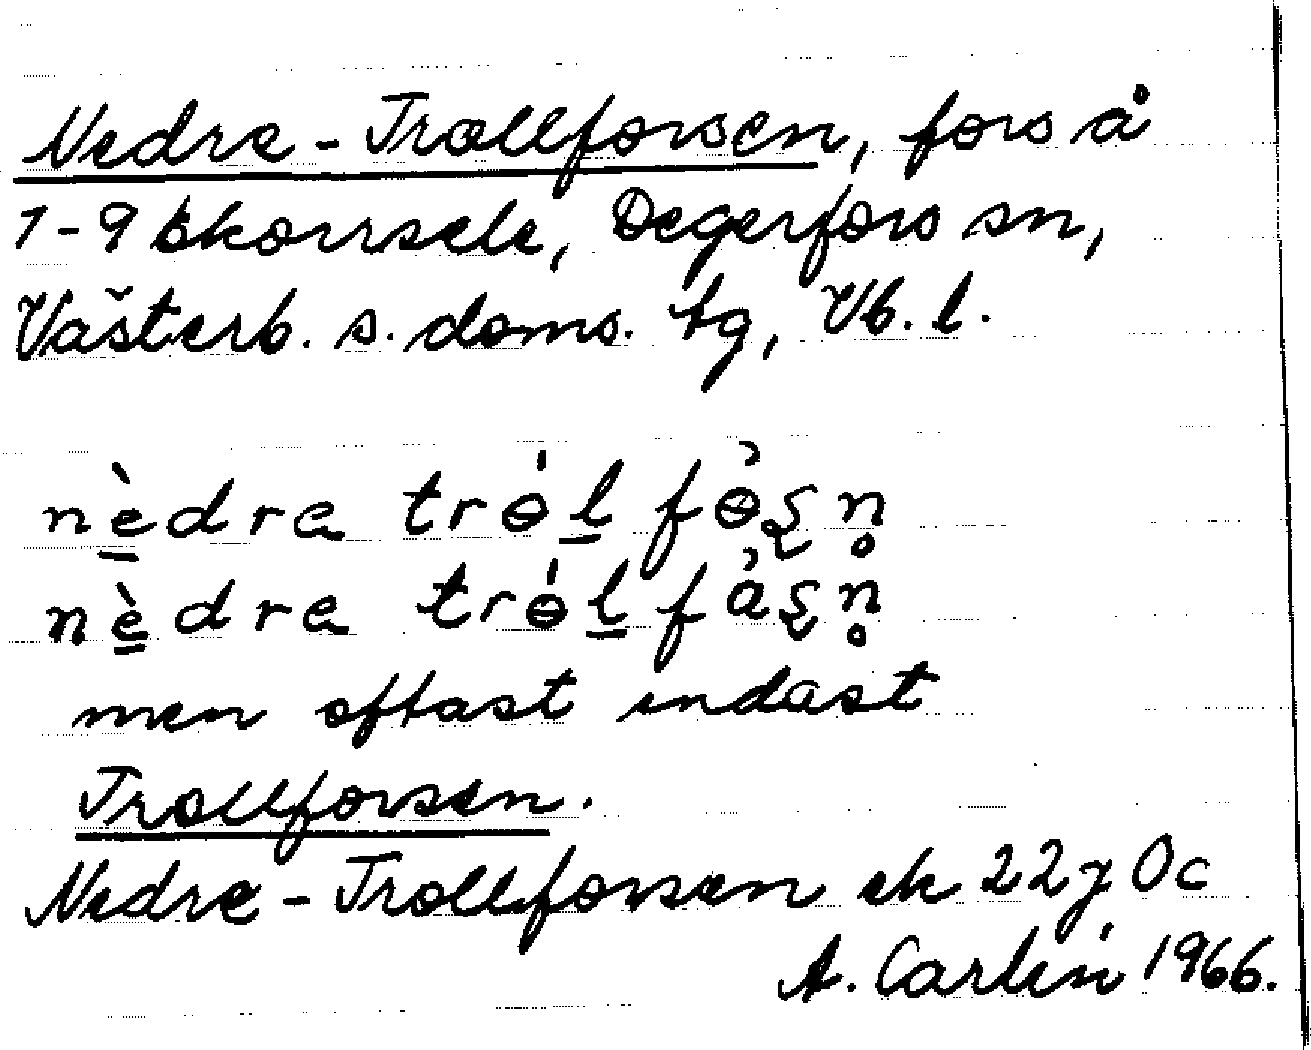 Nedre-Trollforsen, fors å
1-9 Skorrsele, Degerfors sn,
Västerb. s. doms. tg, Vb. l.
nèdrɐ trɵ́l fɵ̀ʂn̥
nèdrɐ trɵ́l fàʂn̥
men oftast endast
Trollforsen.
Nedre-Trollforsen ek 22 j 0c
A. Carlén 1966.